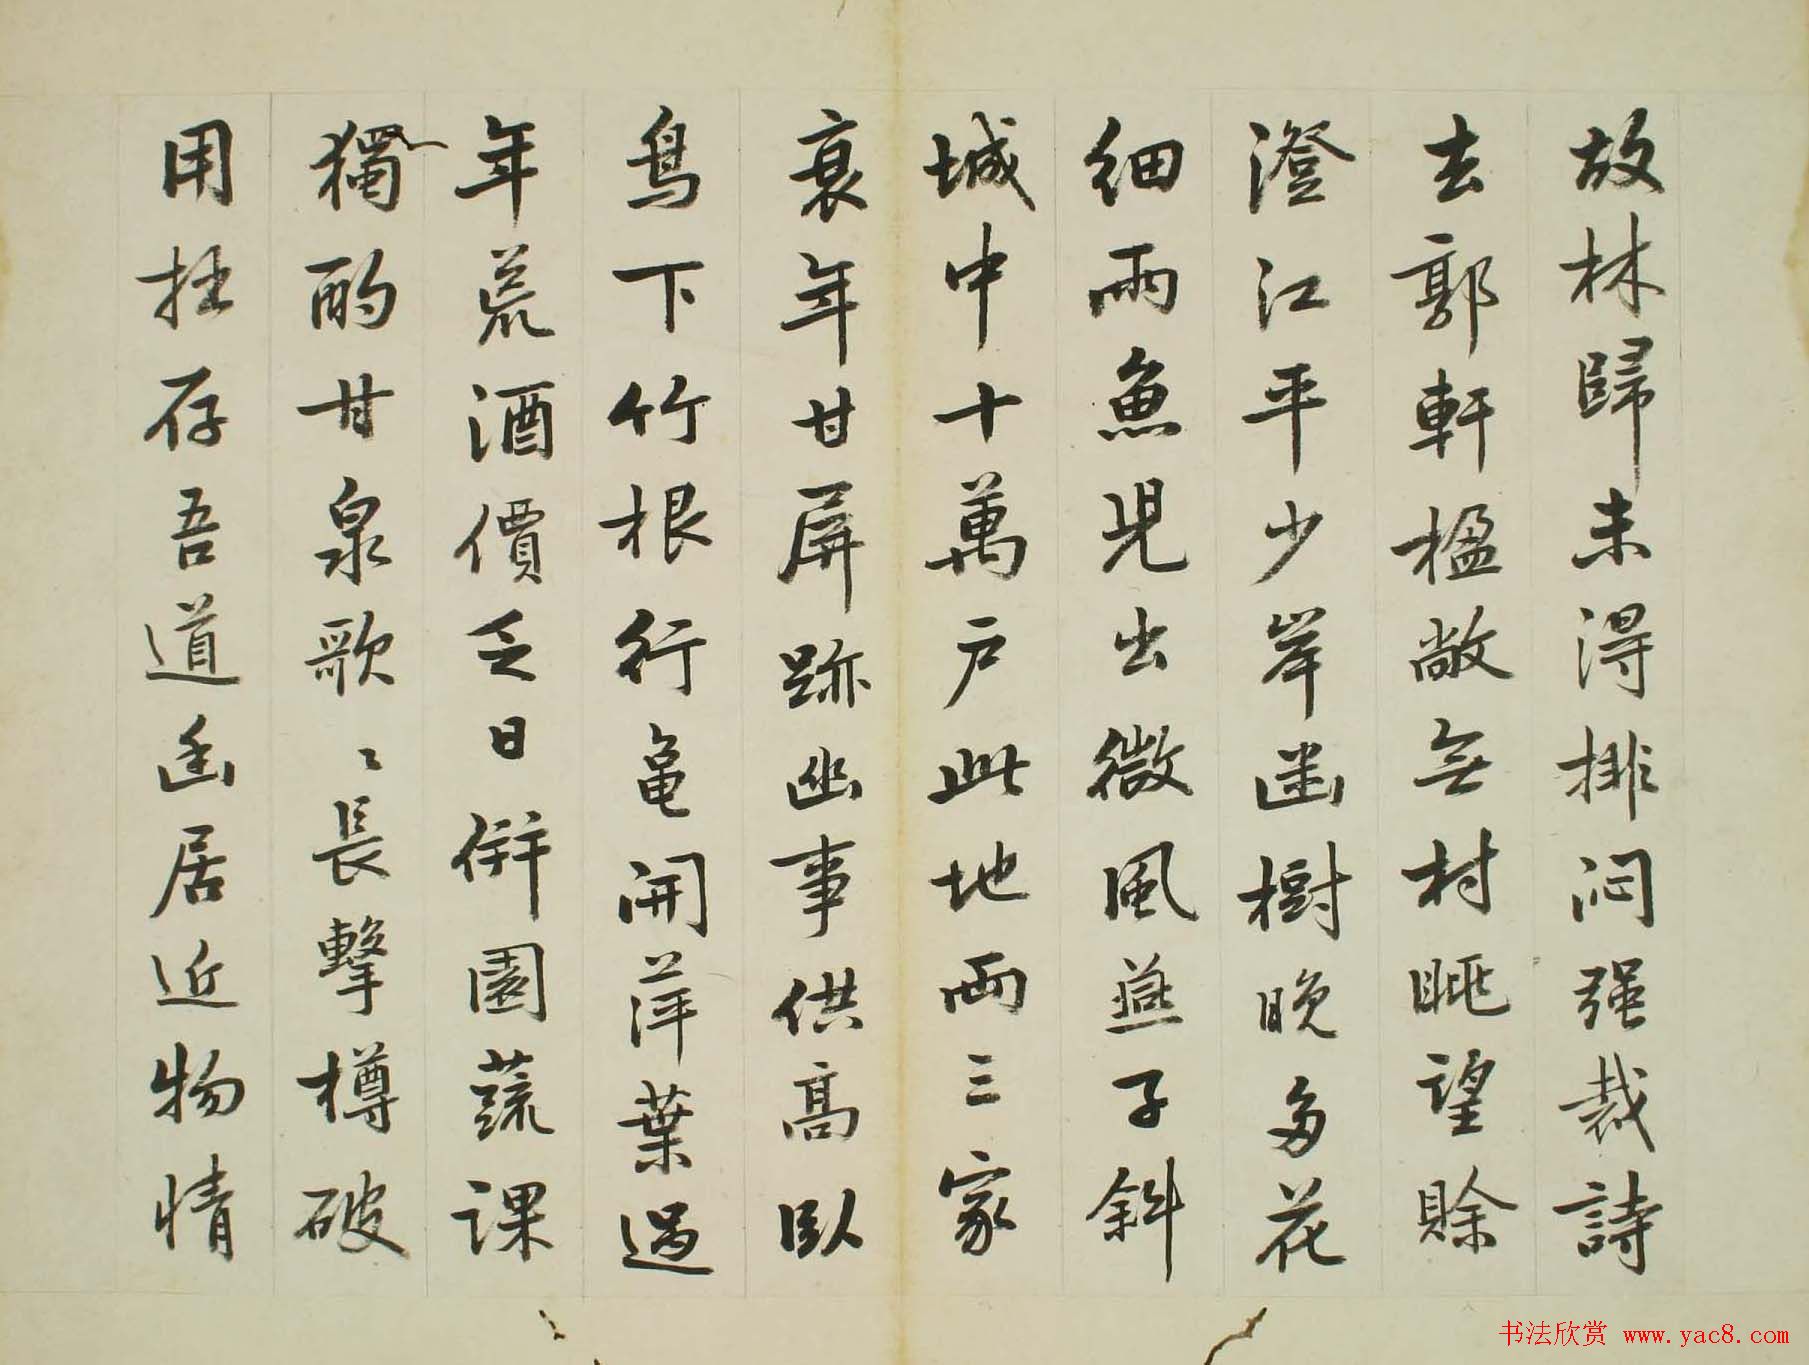 故林歸未得排悶强裁詩
去郭軒楹敞無村眺望賒
澄江平少岸幽樹晚多花
細雨魚兒出微風燕子斜
城中十萬户此地兩三家
衰年甘屏跡幽事供高臥
鳥下竹根行龜開萍葉過
年荒酒價乏日併園蔬課
獨酌甘泉歌〻長擊樽破
用拙存吾道幽居近物情
书法欣赏 www.yac8.com